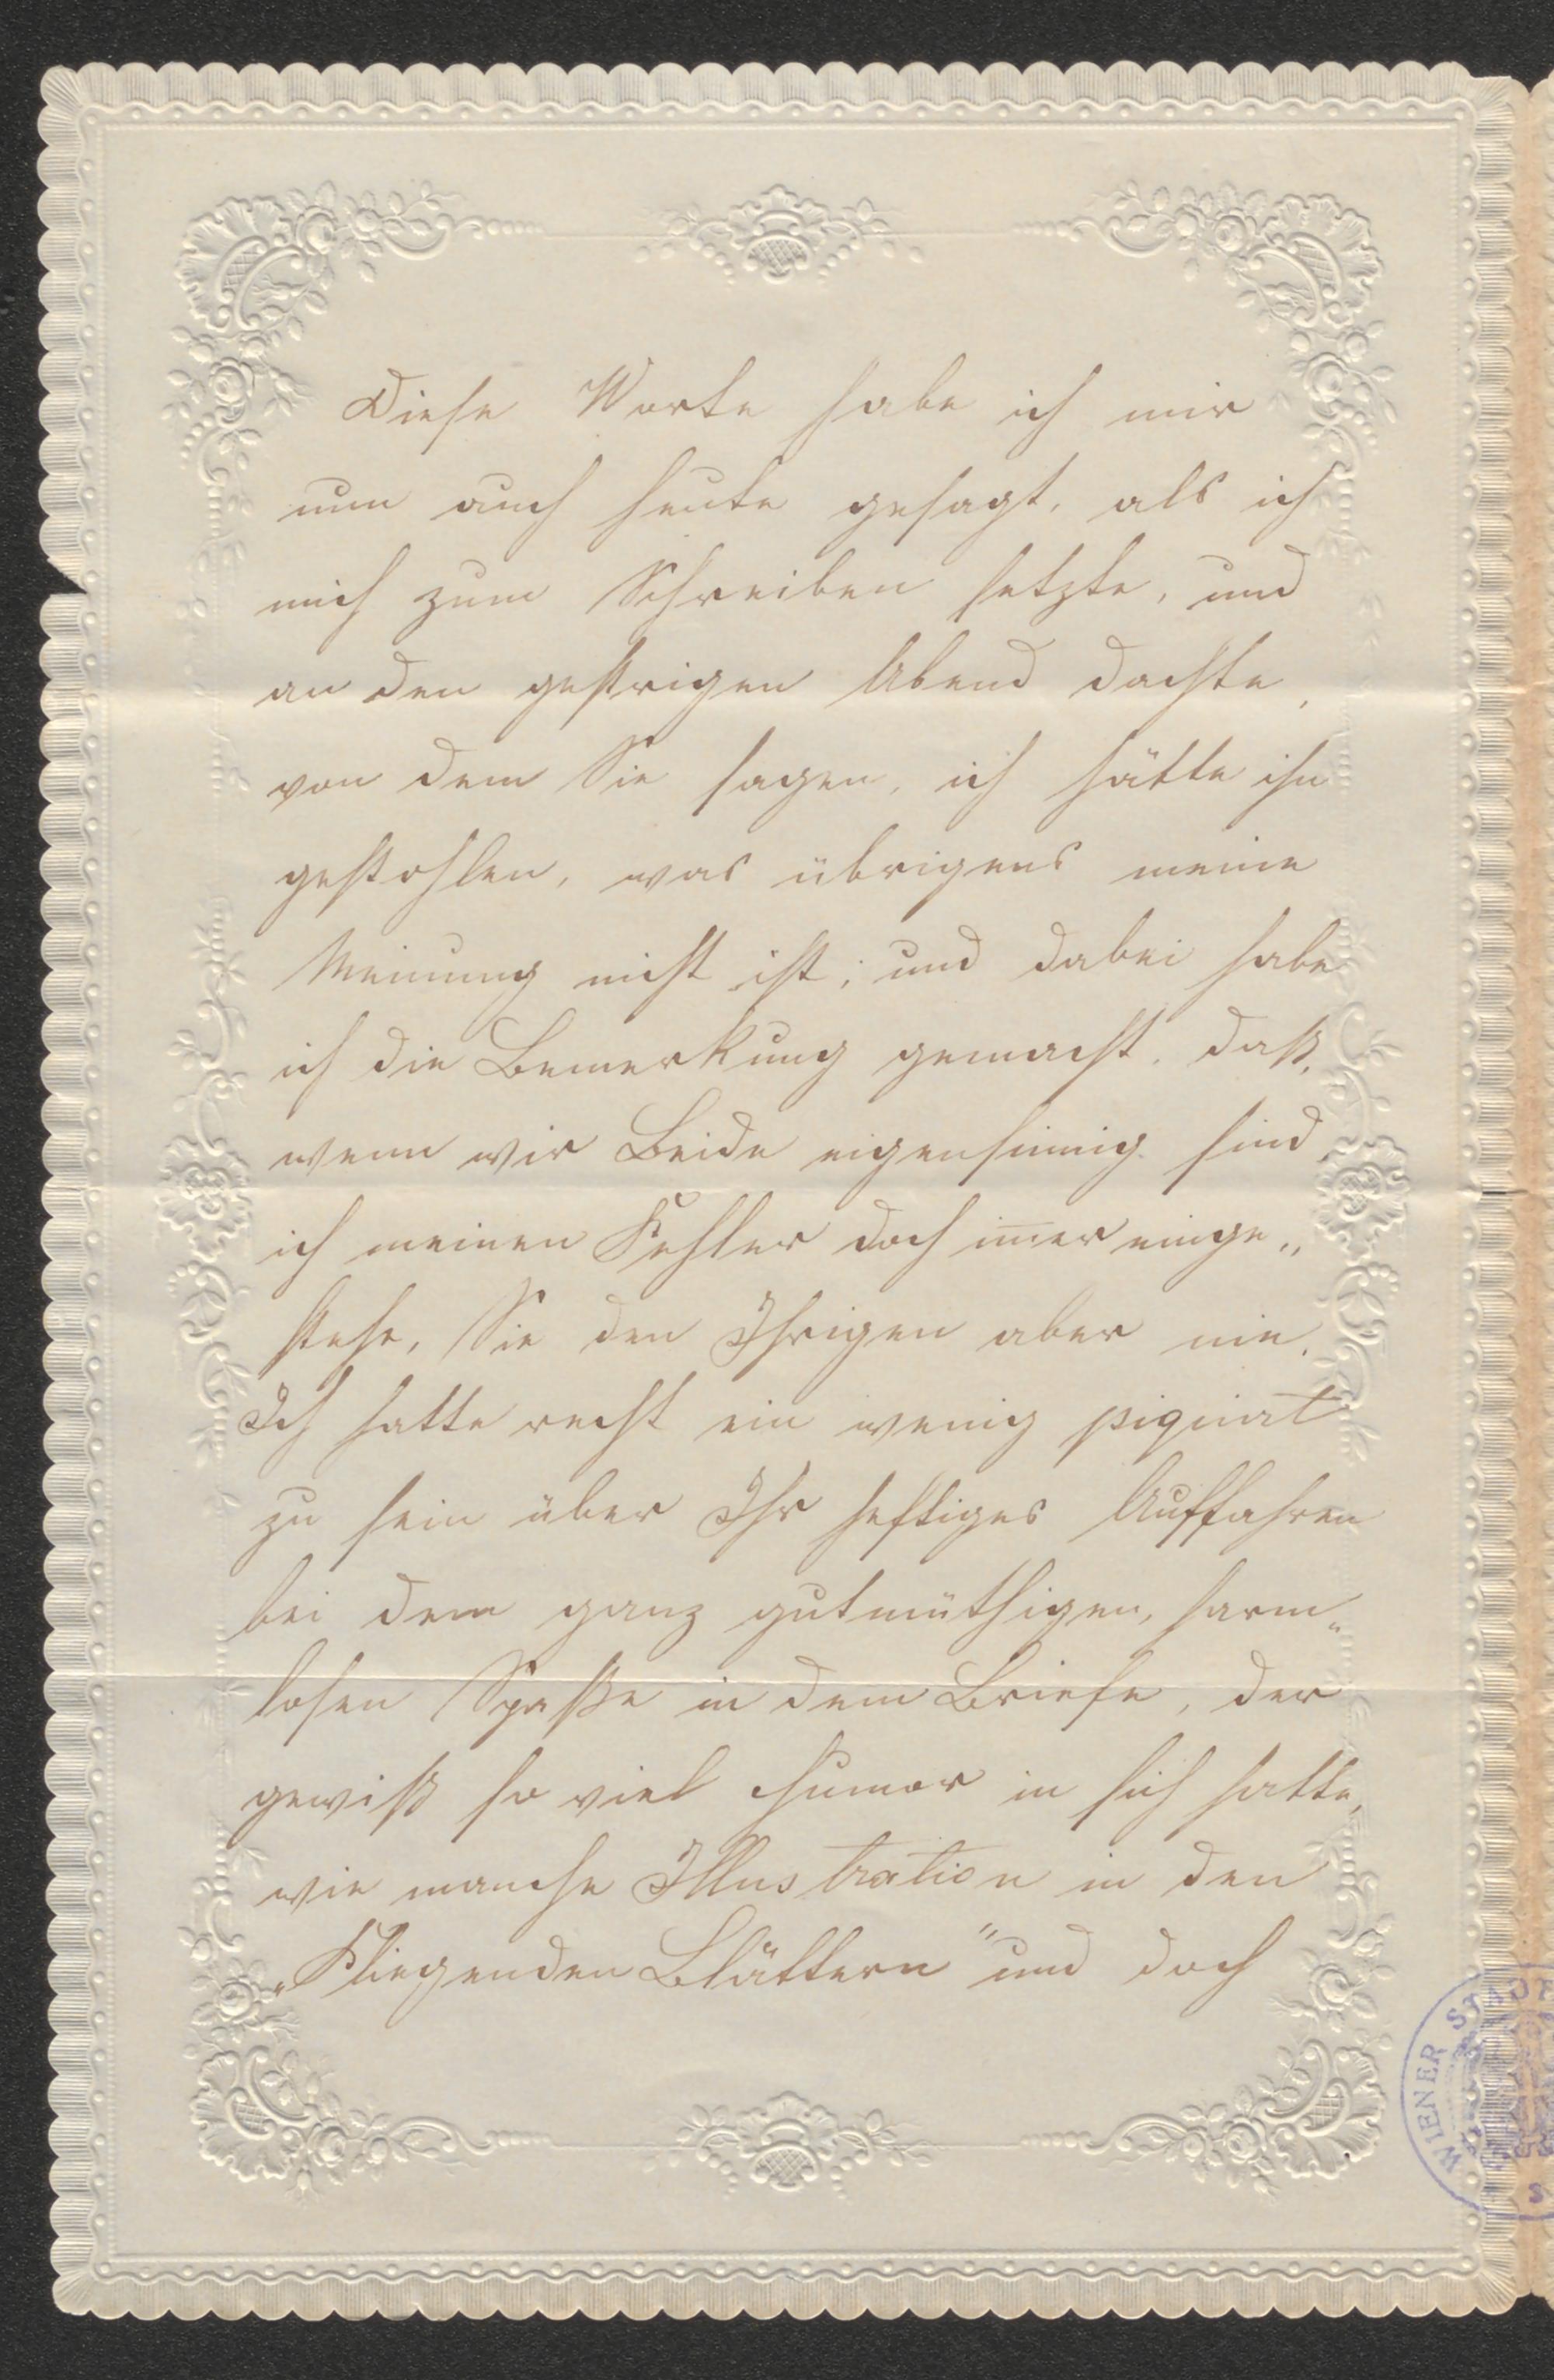 Diese Worte habe ich mir
nun auch heute gesagt, als ich
mich zum Schreiben setzte, und
an den gestrigen Abend dachte,
von dem Sie sagen, ich hätte ihn
gestohlen, was übrigens meine
Meinung nicht ist; und dabei habe
ich die Bemerkung gemacht, daß,
wenn wir Beide eigensinnig sind,
ich meinen Fehler doch im̅er einge„
stehe, Sie den Ihrigen aber nie.
Ich hatte recht ein wenig piquirt
zu sein über Ihr heftiges Auffahren
bei dem ganz gutmüthigen, harm„
losen Spaße in dem Briefe, der
gewiß so viel Humor in sich hatte,
wie manche Illustration in den
„Fliegenden Blättern" und doch
WIENER STADT
S